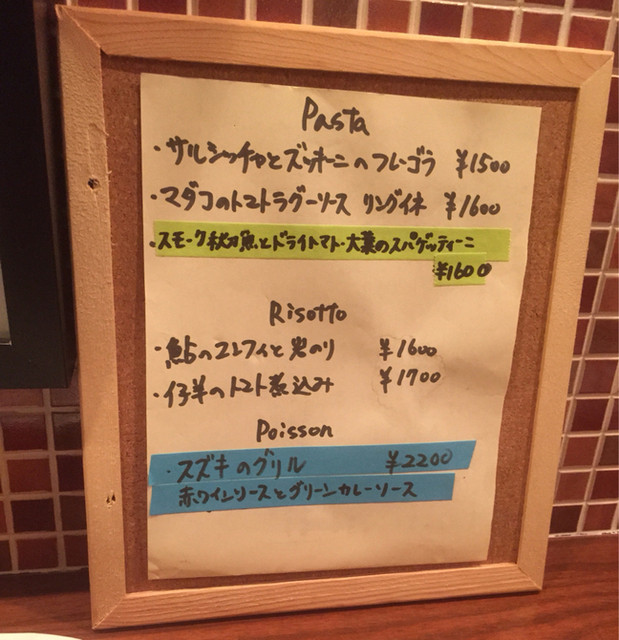 Pasta
・サルシッチャとズッキーニのフレーゴラ ¥1500
・マダコのトマトラグーソース リングイネ ¥1600
・スモーク秋刀魚とドライトマト・大葉のスパゲッティーニ
¥1600
Risotto
・鮎のコンフィと岩のり ¥1600
・仔羊のトマト煮込み ¥1700
Poisson
・スズキのグリル ¥2200
赤ワインソースとグリーンカレーソース